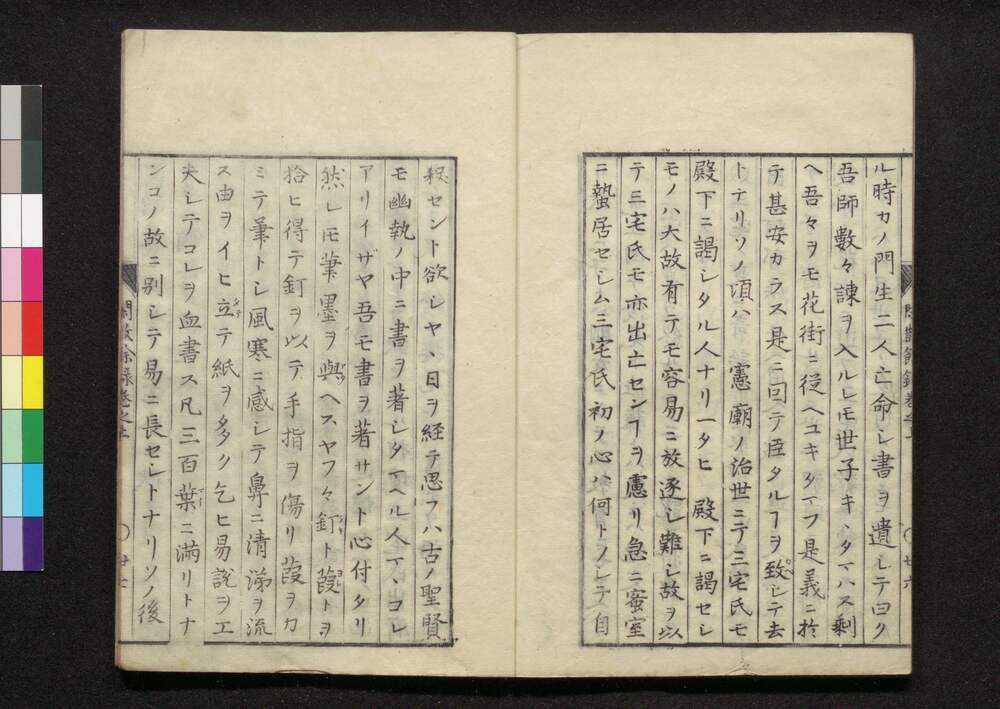 ル時カノ門生二人亡命シ書ヲ遺シテ曰ク
吾師數々諫ヲ入ルレ𪜈世子キヽタマハス剰
ヘ吾々ヲモ花街ニ従ヘユキタマフ是義ニ於
テ甚安カラス是ニ回テ臣タルヿヲ致シテ去
トナリソノ頃ハ 憲廟ノ治世ニテ三宅氏モ
殿下ニ謁シタル人ナリ一タヒ 殿下ニ謁セシ
モノハ大故有テモ容易ニ放逐シ難シ故ヲ以
テ三宅氏モ亦出亡センヿヲ慮リ急ニ蜜室
ニ蟄居セシム三宅氏初ノ心ハ何トソシテ自
閑散餘録巻之上
〇廿六
殺セント欲シヤヽ日ヲ経テ思フハ古ノ聖賢
モ幽執ノ中ニ書ヲ著シタマヘル人マヽコレ
アリイザヤ吾モ書ヲ著サント心付タリ
然レ𪜈筆墨ヲ與ヘスヤフ々釘ト葭トヲ
拾ヒ得テ釘ヲ以テ手指ヲ傷リ葭ヲカ
ミテ筆トシ風寒ニ感シテ鼻ニ清涕ヲ流
ス由ヲイヒ立テ紙ヲ多ク乞ヒ易説ヲ工
夫シテコレヲ血書ス凡三百葉ニ満リトナ
ンコノ故ニ別シテ易ニ長セシトナリソノ後
閑散餘録巻之上
〇廿七